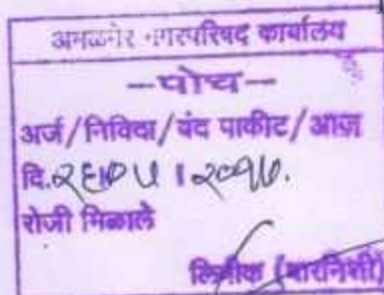 अमळनेर नगरपरिषद कार्यालय
-पोच-
अर्ज/निविदा/बंद पाकीट/आज
दि.२६।०५।२०१७.
रोजी मिळाले
लिपीक (बारनिशी)